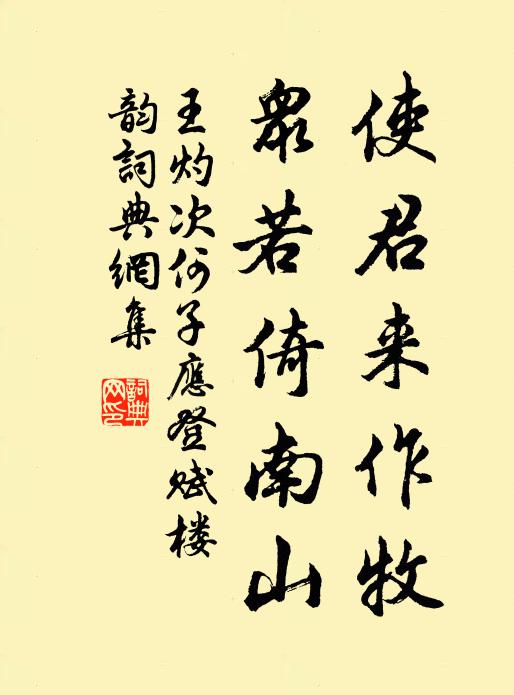 使君来作牧
眾若倚南山
王灼次何子應登賦楼
韵詞典網集
詞典
网印